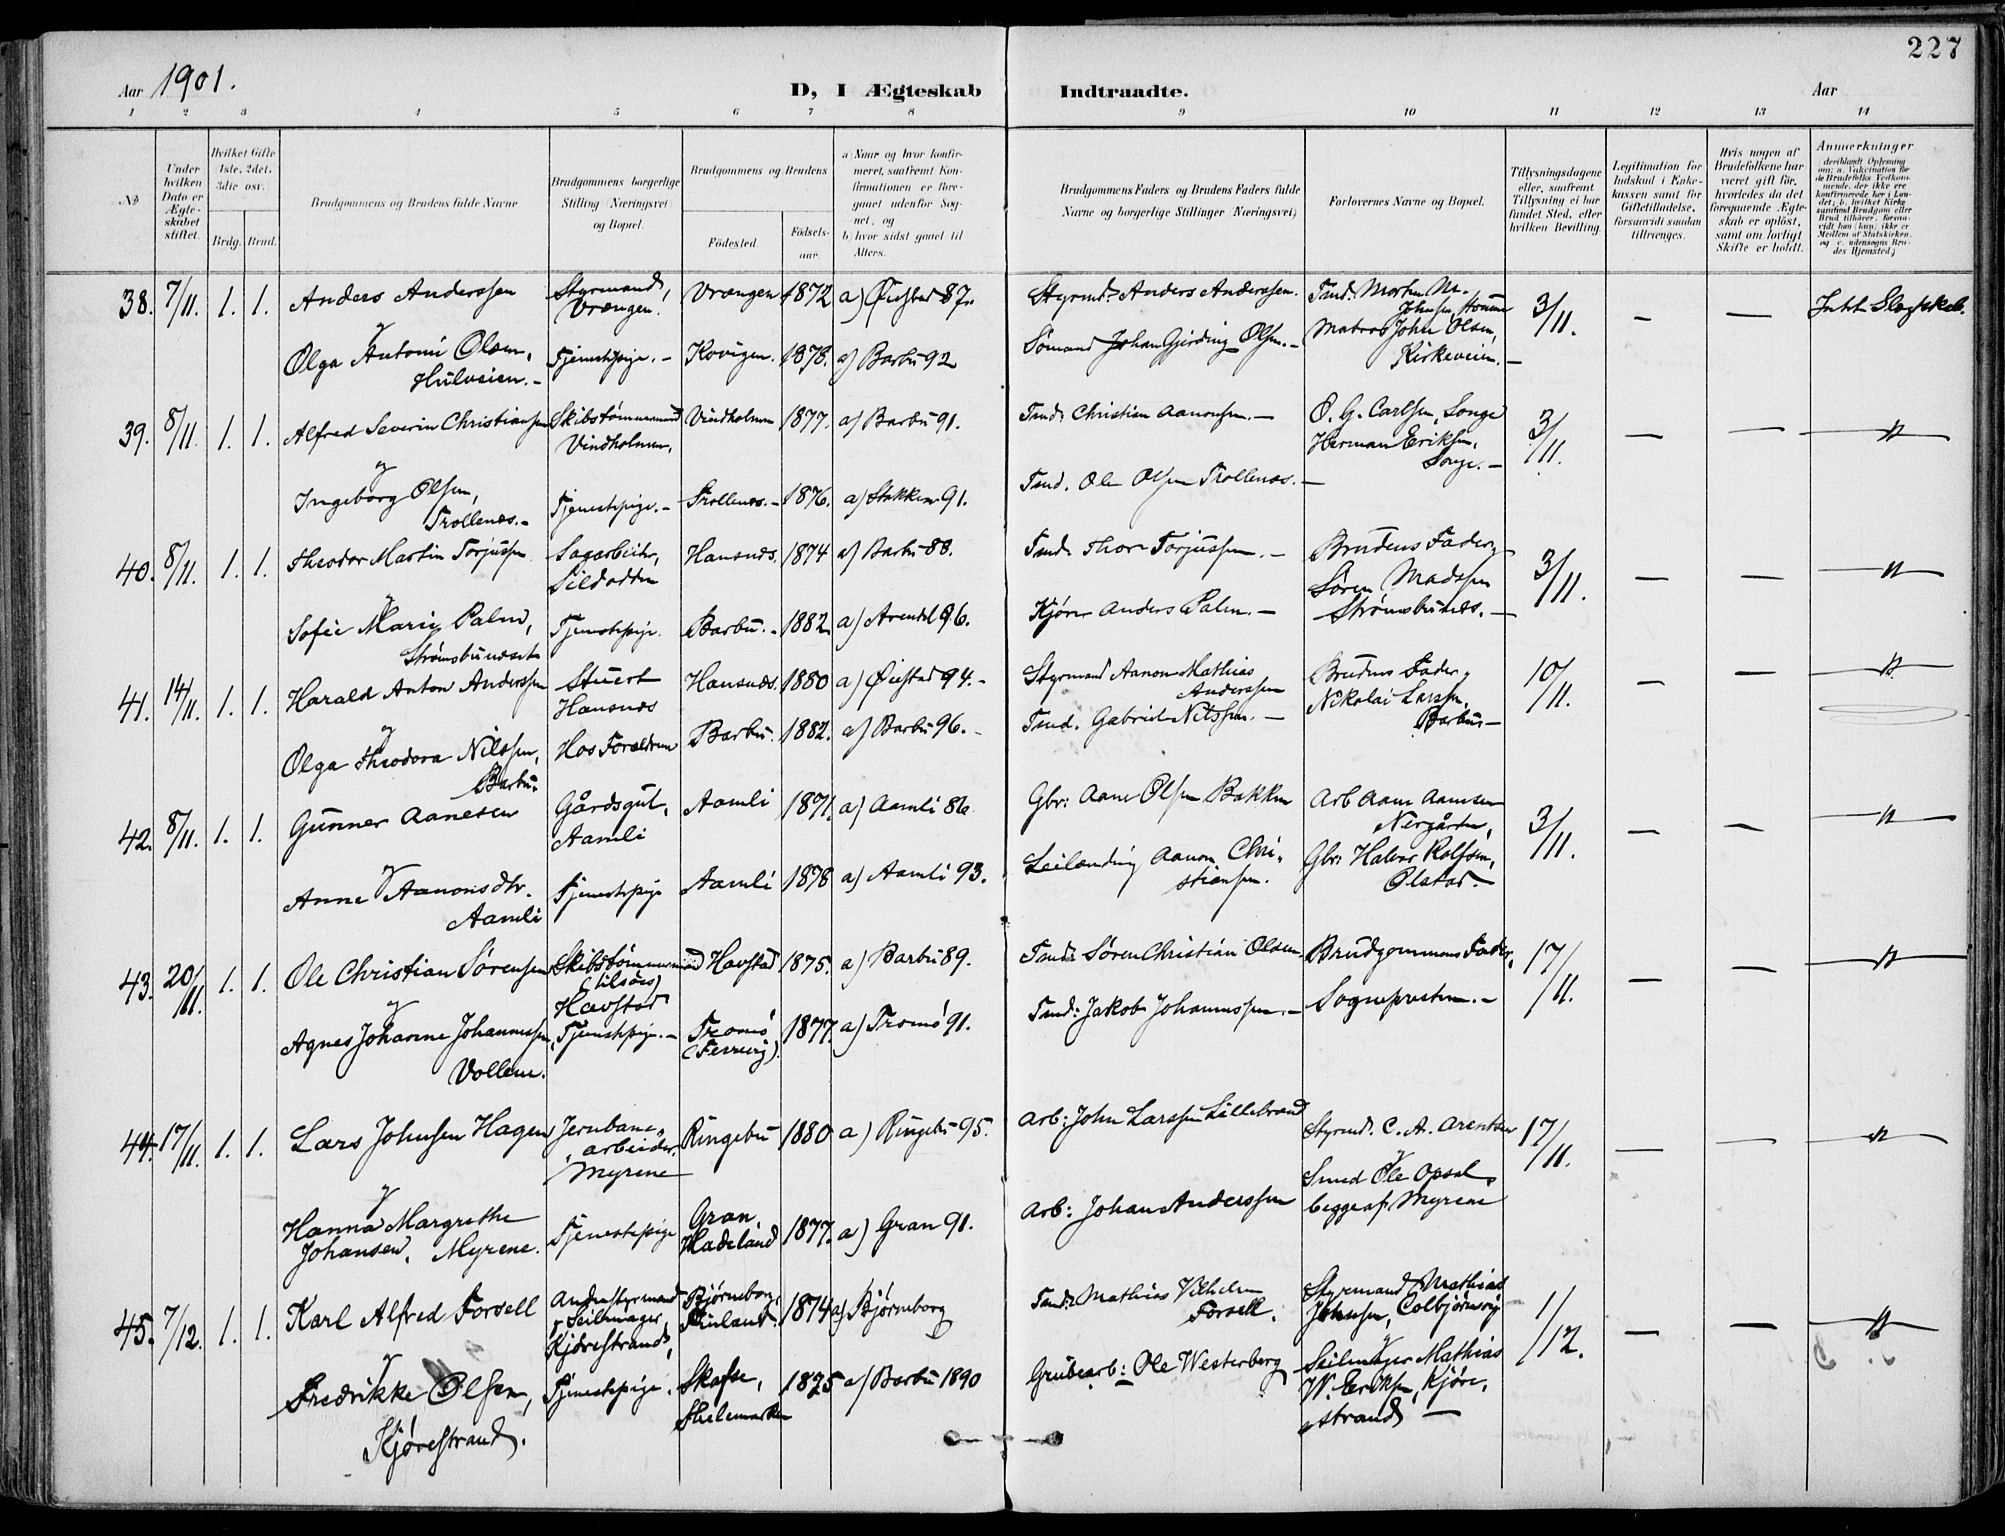 227
Aar 1901.
D, I Ægteskab Indtraadte.
Aar
1 2 3 4 5 6 7 8 9 10 11 12 13 14
No
Under hvilken Dato er Ægteskabet stiftet.
Hvilket Gifte 1ste, 2det, 3die osv.
Brdg. Brud.
Brudgommens og Brudens fulde Navne
Brudgommens borgerlige Stilling (Næringsvei) og Bopæl.
Brudgommens og Brudens
Fødested
Fødselsaar.
a) Naar og hvor konfirmeret, saafremt Konfirmationen er foregaaet udenfor Sognet, og
b) hvor sidst gaaet til Alters.
Brudgommens Faders og Brudens Faders fulde Navne og borgerlige Stillinger (Næringsvei)
Forlovernes Navne og Bopæl.
Tillysningsdagene eller, saafremt Tillysning ei har fundet Sted, efter hvilken Bevilling.
Legitimation for Indskud i Enkekassen samt for Giftetilladelse, forsaavidt saadan tiltrænges.
Hvis nogen af Brudefolkene har været gift før, hvorledes da det foregaaende Ægteskab er opløst, samt om lovligt Skifte er holdt.
Anmerkninger
38. 7/11. 1. 1. Anders Anderssen Styrmand, Vrængen. Vrængen 1872 a) Øiestad 87. Styrmd. Anders Anderssen. Tmd. Morten M. Johnsen, 3/11. — —
& Olga Antoni Olsen, Hulveien. Tjenestepige. Kovigen. 1878. a) Barbu 92 Sømand Johan Gjerding Olsen. Matros John Olsen, Kirkeveien.
39. 8/11. 1. 1. Alfred Severin Christiansen Skibstømmermand Vindholmen, Vindholmen 1877. a) Barbu 91. Tmd. Christian Aanonsen. O. G. Carlsen, Songe 3/11. — — "
& Ingeborg Olsen, Trollenæs. Tjenestepige. Trollenæs. 1876. a) Stokken 91. Tmd. Ole Olsen Trollenæs. Herman Eriksen, Songe.
40. 8/11. 1. 1. Theodor Martin Torjussen Sagarbeider, Sildodden Hansnæs. 1874 a) Barbu 88. Tmd. Thor Torjussen. Brudens Fader, 3/11. — — "
& Sofie Marie Palm, Strømsbunæset Tjenestepige. Barbu. 1882 a) Arendal 96. Kjører Anders Palm. Søren Madssen Strømsbunæs.
41. 14/11. 1. 1. Harald Anton Anderssen Stuert Hansnæs Hansnæs. 1880 a) Øiestad 94. Styrmand Aanon Mathias Anderssen Brudens Fader, 10/11. — — "
& Olga Theodora Nilssen, Barbu. Hos Forældrene Barbu. 1882. a) Barbu 96. Tmd. Gabriel Nilssen. Nikolai Larssen, Barbu
42. 8/11. 1. 1. Gunner Aanesen Gårdsgut, Aamli Aamli 1871. a) Aamli 86 Gbr: Aane Olsen Bakken Arb Aane Aanesen Nergården, 3/11. — — "
& Anne Aanonsdtr. Aamli Tjenestepige Aamli 1878 a) Aamli 93. Leilænding Aanon Christiansen. Gbr: Halvor Rolfsen, Ølstad.
43. 20/11. 1. 1. Ole Christian Sørensen Skibstømmermand (tilsøes) Havstad Havstad 1875. a) Barbu 89. Tmd: Søren Christian Olsen Brudgommens Fader, 17/11. — — "
& Agnes Johanne Johannessen, Vollene. Tjenestepige. Tromø (Færvig). 1877. a) Tromø 91. Tmd: Jakob Johannessen. Sognepresten.
44. 17/11. 1. 1. Lars Johnsen Hagen Jernbanearbeider. Myrene Ringebu 1880 a) Ringebu 95. Arb: John Larssen Lillebrænd Styrmd. C. A. Arentsen 17/11. — — "
& Hanna Margrethe Johansen, Myrene. Tjenestepige Gran Hadeland 1877. a) Gran 91. Arb: Johan Anderssen & Smed Ole Opsal, begge af Myrene
45. 7/12. 1. 1. Karl Alfred Forsell Andenstyrmand & Seilmager, Kjørestrand, Bjørneborg, Finland. 1874 a) Bjørneborg Tmd: Mathias Vilhelm Forsell. Styrmand Mathias Johnsen, Colbjørnsvig 1/12. — — "
& Fredrikke Olsen, Kjørestrand. Tjenestepige. Skafse, Thelemarken 1875 a) Barbu 1890 Grubearb: Ole Westerberg & Seilmager Mathias W. Eriksen, Kjørestrand